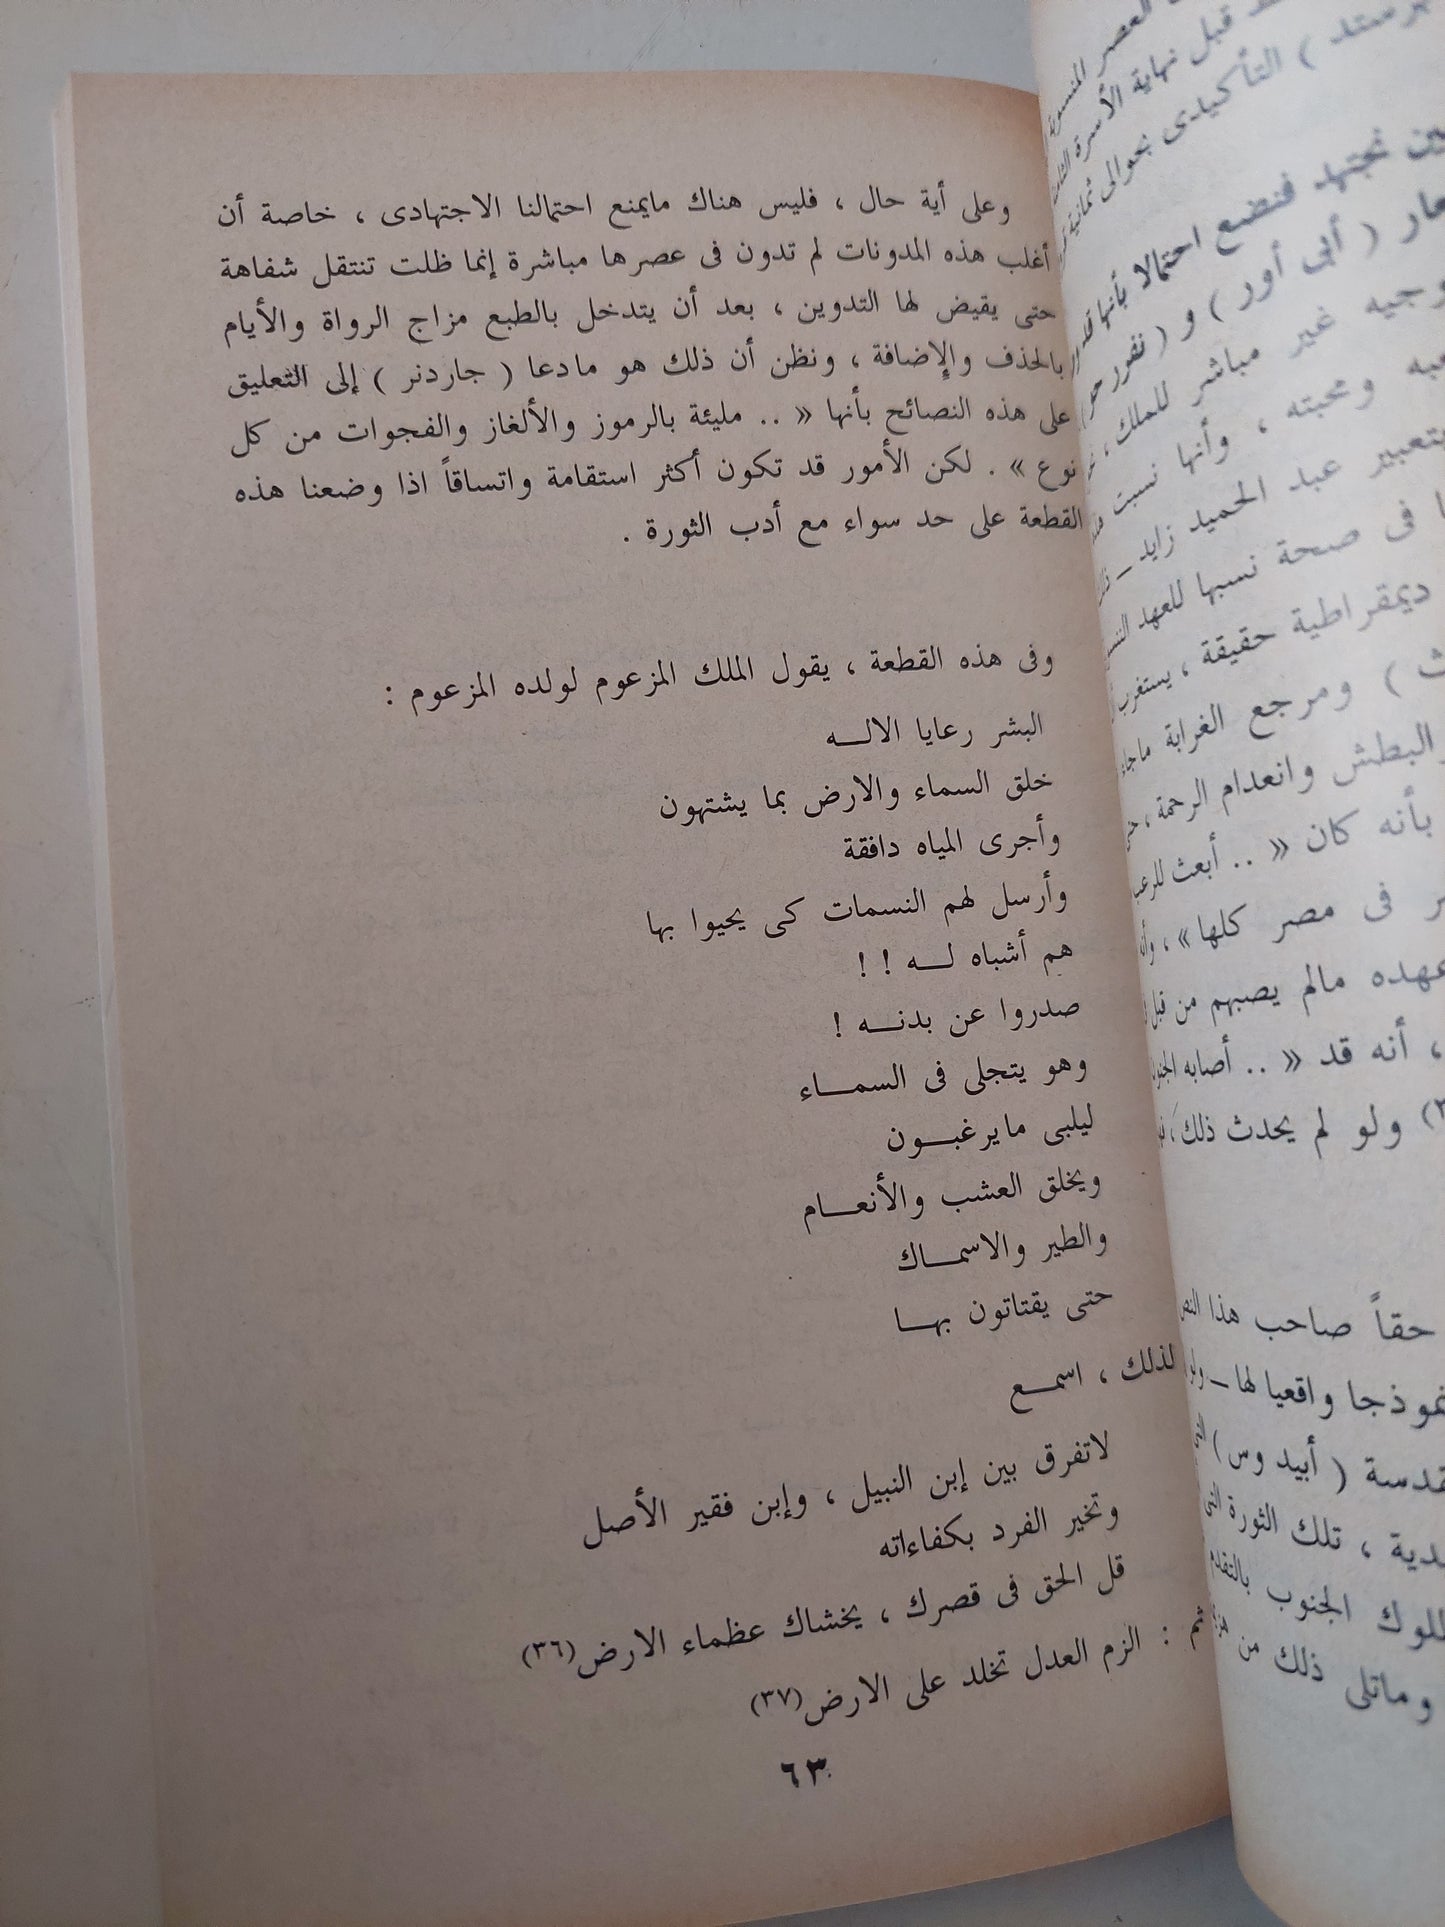 وعلى أية حال ، فليس هناك مايمنع احتمالنا الاجتهادى ، خاصة أن
أغلب هذه المدونات لم تدون فى عصرها مباشرة إنما ظلت تنتقل شفاهة
حتى يقيض لها التدوين ، بعد أن يتدخل بالطبع مزاج الرواة والأيام
بالحذف والإضافة ، ونظن أن ذلك هو مادعا ( جاردنر ) إلى التعليق
على هذه النصائح بأنها « .. مليئة بالرموز والألغاز والفجوات من كل
نوع » . لكن الأمور قد تكون أكثر استقامة واتساقاً اذا وضعنا هذه
القطعة على حد سواء مع أدب الثورة .
وفى هذه القطعة ، يقول الملك المزعوم لولده المزعوم :
البشر رعايا الالـــه
خلق السماء والارض بما يشتهون
وأجرى المياه دافقة
وأرسل لهم النسمات كى يحيوا بها
هم أشباه لـــه ! !
صدروا عن بدنـــه !
وهو يتجلى فى السمـــاء
ليلبى مايرغبـــون
ويخلق العشب والأنعـــام
والطير والاسمـــاك
حتى يقتاتون بهـــا
لذلك ، اسمـــع
لاتفرق بين إبن النبيل ، وإبن فقير الأصل
وتخير الفرد بكفاءاته
قل الحق فى قصرك ، يخشاك عظماء الارض(٣٦)
ثم : الزم العدل تخلد على الارض(٣٧)
٦٣
العصر المنسوبة
قبل نهاية الأسرة
) التأكيدى بحوالى ثمانية
نجتهد فنضع احتمالا بأنها قد
( أبى أور ) و ( نفرر حو )
غير مباشر للملك ،
ومحبته ، وأنها نسبت
بتعبير عبد الحميد زايد ــ
فى صحة نسبها للعهد
ديمقراطية حقيقة ، يستغرب
) ومرجع الغرابة ماجاء
والبطش وانعدام الرحمة ، حتى
بأنه كان « .. أبعث للرعب
فى مصر كلها » ، وأنه
عهده مالم يصبهم من قبل
، أنه قد « .. أصابه الجنون
ولو لم يحدث ذلك ،
حقاً صاحب هذا النص
نموذجا واقعيا لها ــ ولو
( أبيدوس )
، تلك الثورة التى
الجنوب بالتقدم
وماتلى ذلك من